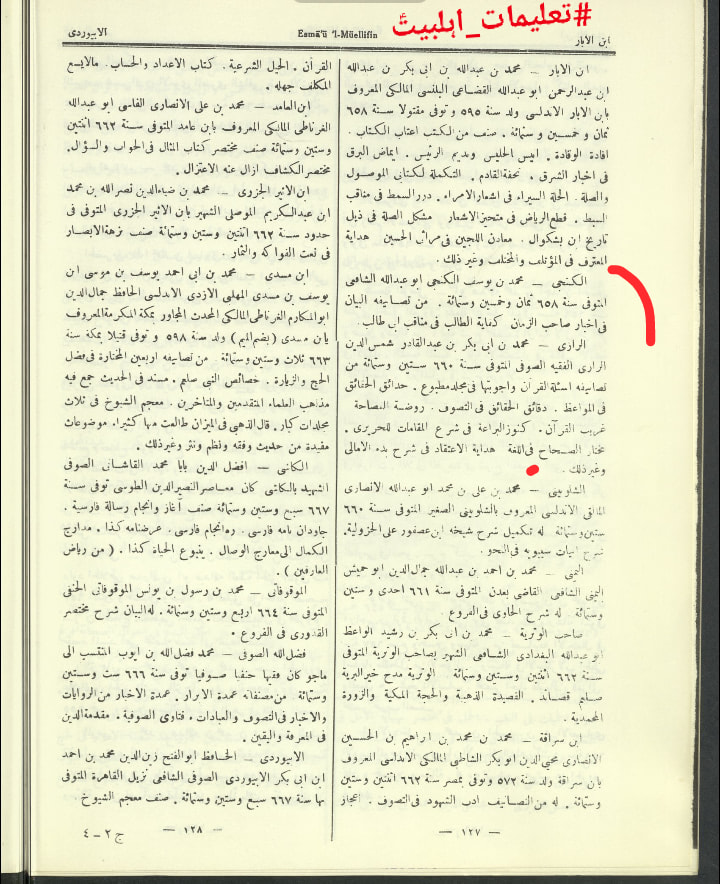 #تعلیمات_اہلبیتؑ
ابن الابار
Esmâ'ü 'l-Müellifîn
الابيوردى
ابن الابار – محمد بن عبدالله بن ابى بكر بن عبدالله
ابن عبدالرحمن ابو عبدالله القضاعى البلنسى المالكى المعروف
بابن الابار الاندلسى ولد سنة ٥٩٥ و توفى مقتولا سنة ٦٥٨
ثمان و خمسين و ستمائة . صنف من الكتب اعتاب الكتاب .
افادة الوفادة . انيس الجليس ونديم الرئيس . ايماض البرق
فى اخبار الشرق . تحفة القادم . التكملة لكتابى الموصول
والصلة . الحلة السيراء فى اشعار الامراء . درر السمط فى مناقب
السبط . قطع الرياض فى متخير الاشعار . مشكل الصلة فى ذيل
تاريخ ابن بشكوال . معادن اللجين فى مراثى الحسين . هداية
المعترف فى المؤتلف والمختلف وغير ذلك .
الكنجى – محمد بن يوسف الكنجى ابو عبدالله الشافعى
المتوفى سنة ٦٥٨ ثمان وخمسين وستمائة . من تصانيفه البيان
فى اخبار صاحب الزمان . كفاية الطالب فى مناقب ابى طالب .
الرازى – محمد بن ابى بكر بن عبدالقادر شمس الدين
الرازى الفقيه الصوفى المتوفى سنة ٦٦٠ ستين وستمائة من
تصانيفه اسئلة القرآن واجوبتها فى مجلد مطبوع . حدائق الحقائق
فى المواعظ . دقائق الحقائق فى التصوف . روضة الفصاحة
غريب القرآن . كنوز البراعة فى شرع المقامات للحريرى .
مختار الصحاح فى اللغة هداية الاعتقاد فى شرح بدء الامالى
وغير ذلك .
الشلوبينى – محمد بن على بن محمد ابو عبدالله الانصارى
المالقى الاندلسى المعروف بالشلوبينى الصغير المتوفى سنة ٦٦٠
ستين وستمائة له تكميل شرح شيخه ابن عصفور على الجزولية .
شرح ابيات سيبويه فى النحو .
اليمنى – محمد بن احمد بن عبدالله جمال الدين ابو حميش
اليمنى الشافعى القاضى بعدن المتوفى سنة ٦٦١ احدى و ستين
وستمائة له شرح الحاوى فى الفروع .
صاحب الوترية – محمد بن ابى بكر بن رشيد الواعظ
ابو عبدالله البغدادى الشافعى الشهير بصاحب الوترية المتوفى
سنة ٦٦٢ اثنتين وستين وستمائة الوترية مدح خير البرية
صلعم قصائد . القصيدة الذهبية والحجة المكية والزورة
المحمدية .
ابن سراقة – محمد بن محمد بن ابراهيم بن الحسين
الانصارى محيى الدين ابو بكر الشاطبى المالكى الاندلسى المعروف
بابن سراقة ولد سنة ٥٧٢ وتوفى بمصر سنة ٦٦٢ اثنتين وستين
وستمائة . له من التصانيف ادب الشهود فى التصوف . اعجاز
– ١٢٧ –
القرآن . الحيل الشرعية . كتاب الاعداد والحساب . مالايسع
المكلف جهله .
ابن العامد – محمد بن على الانصارى الفاسى ابو عبدالله
الغرناطى المالكى المعروف بابن عامد المتوفى سنة ٦٦٢ اثنتين
وستين وستمائة صنف مختصر كتاب المثال فى الجواب والسؤال .
مختصر الكشاف ازال عنه الاعتزال .
ابن الاثير الجزرى – محمد بن ضياء الدين نصر الله بن محمد
ابن عبدالكريم الموصلى الشهير بابن الاثير الجزرى المتوفى فى
حدود سنة ٦٦٢ اثنتين وستين وستمائة صنف نزهة الابصار
فى نعت الفواكه والثمار .
ابن مسدى – محمد بن ابى احمد يوسف بن موسى ابن
يوسف بن مسدى المهلبى الازدى الاندلسى الحافظ جمال الدين
ابو المكارم الغرناطى المالكى المحدث المجاور بمكة المكرمة المعروف
بابن مسدى ( بضم الميم ) ولد سنة ٥٩٨ و توفى قتيلا بمكة سنة
٦٦٣ ثلاث وستين وستمائة . من تصانيفه اربعين المختارة فى فضل
الحج والزيارة . خصائص النبى صلعم . مسند فى الحديث جمع فيه
مذاهب العلماء المتقدمين والمتاخرين . معجم الشيوخ فى ثلاث
مجلدات كبار . قال الذهبى فى الميزان طالعت منها كثيرا . موضوعات
مفيدة من حديث وفقه ونظم ونثر وغير ذلك .
الكاشى – افضل الدين بابا محمد القاشانى الصوفى
الشهيد بالكاشى كان معاصر النصير الدين الطوسى توفى سنة
٦٦٧ سبع وستين وستمائة صنف آغاز وانجام رسالة فارسية .
جاودان نامه فارسى . ره انجام فارسى . عرضنامه كذا . مدارج
الكمال الى معارج الوصال . ينبوع الحياة كذا . ( من رياض
العارفين ) .
الموقوفاتى – محمد بن رسول بن يونس الموقوفاتى الحنفى
المتوفى سنة ٦٦٤ اربع وستين وستمائة . له البيان شرح مختصر
القدورى فى الفروع .
فضل الله الصوفى – محمد فضل الله بن ايوب المنتسب الى
ماجو كان فقيها حنفيا صوفيا توفى سنة ٦٦٦ ست وستين
وستمائة . من مصنفاته عمدة الابرار . عمدة الاخبار من الروايات
والاخبار فى التصوف والعبادات . فتاوى الصوفية . مقدمة الدين
فى المعرفة واليقين .
الابيوردى – الحافظ ابو الفتح زين الدين محمد بن احمد
ابن ابى بكر الابيوردى الصوفى الشافعى نزيل القاهرة المتوفى
بها سنة ٦٦٧ سبع وستين وستمائة . صنف معجم الشيوخ
– ١٢٨ –
ج ٢ – ٤